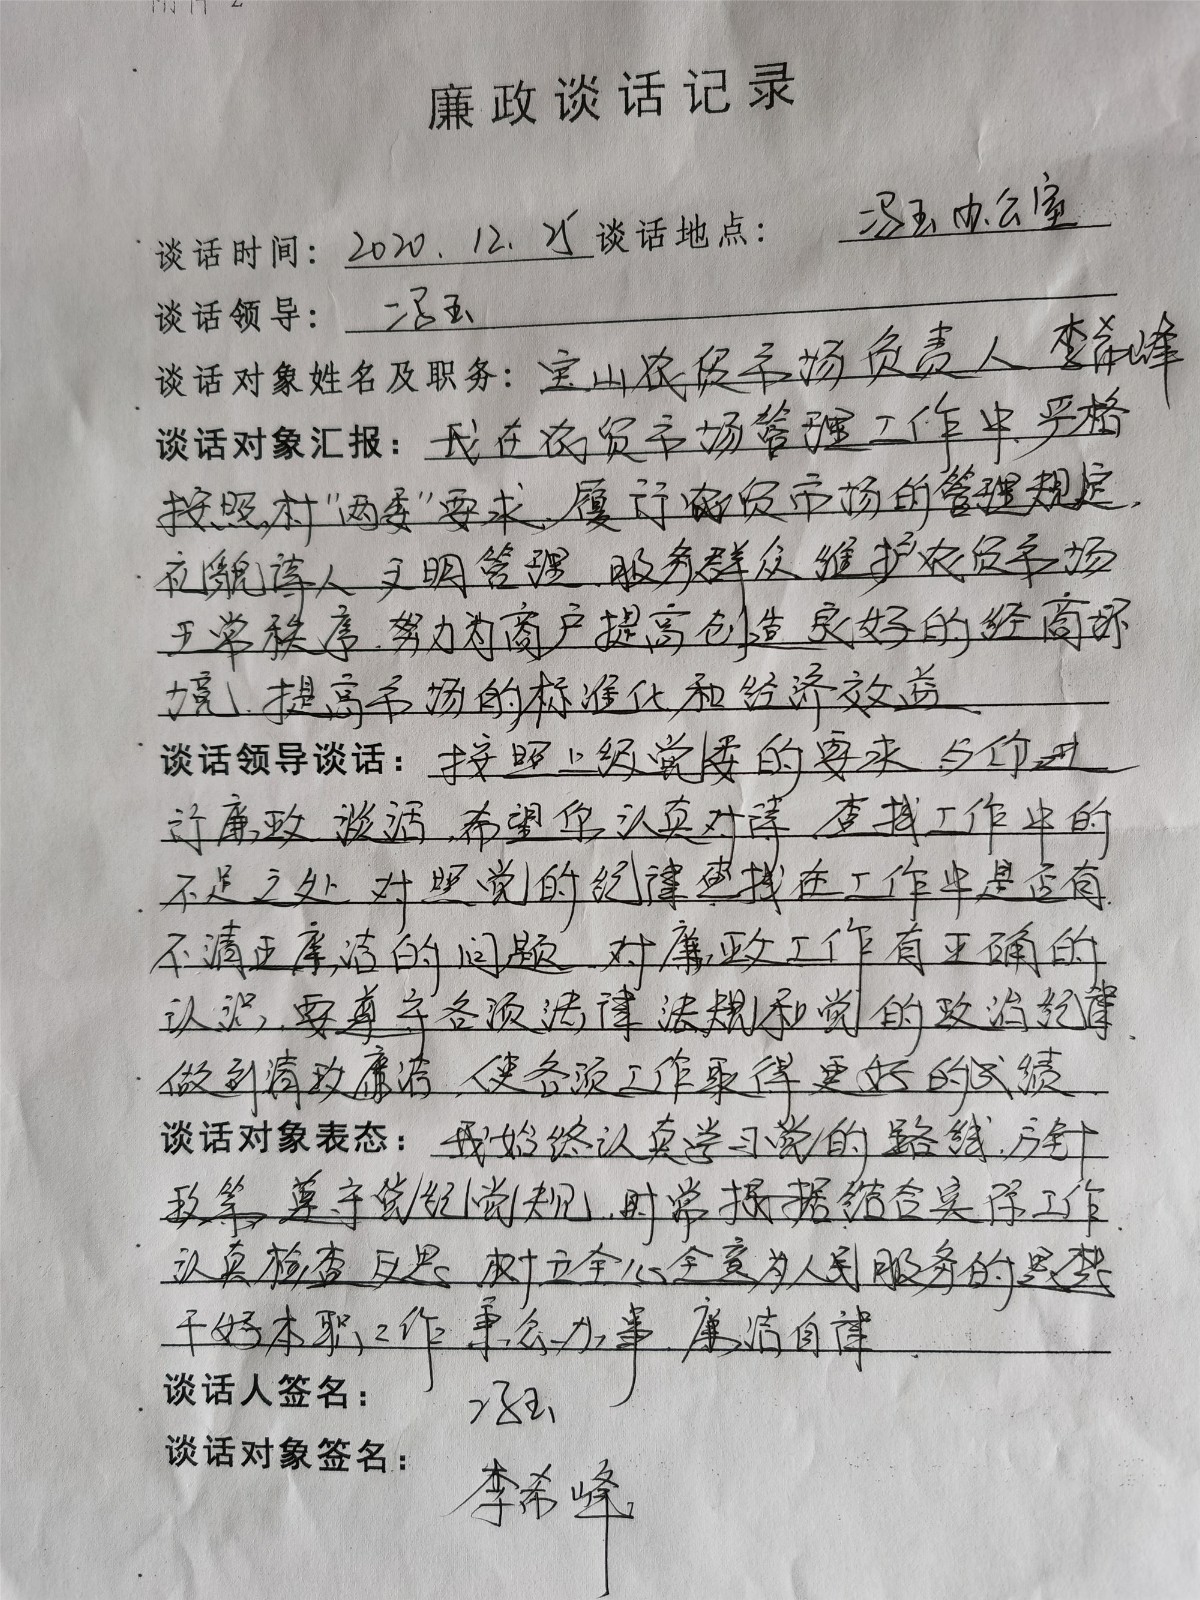 附件2
廉政谈话记录
谈话时间：2020.12.25 谈话地点：冯玉办公室
谈话领导：冯玉
谈话对象姓名及职务：宝山农贸市场负责人 李希峰
谈话对象汇报：我在农贸市场管理工作中,严格
按照村“两委”要求,履行农贸市场的管理规定,
礼貌待人 文明管理.服务群众 维护农贸市场
正常秩序.努力为商户提高创造良好的经商环
境.提高市场的标准化和经济效益
谈话领导谈话：按照上级党委的要求 与你进
行廉政谈话,希望您认真对待 查找工作中的
不足之处 对照党的纪律查找在工作中是否有
不清正廉洁的问题 对廉政工作有正确的
认识,要尊守各项法律法规和党的政治纪律.
做到清政廉洁,使各项工作取得更好的成绩.
谈话对象表态：我始终认真学习党的路线.方针
政策,尊守党纪党规,时常根据结合实际工作.
认真检查反思 树立全心全意为人民服务的思想
干好本职工作 秉公办事 廉洁自律
谈话人签名：冯玉
谈话对象签名：李希峰